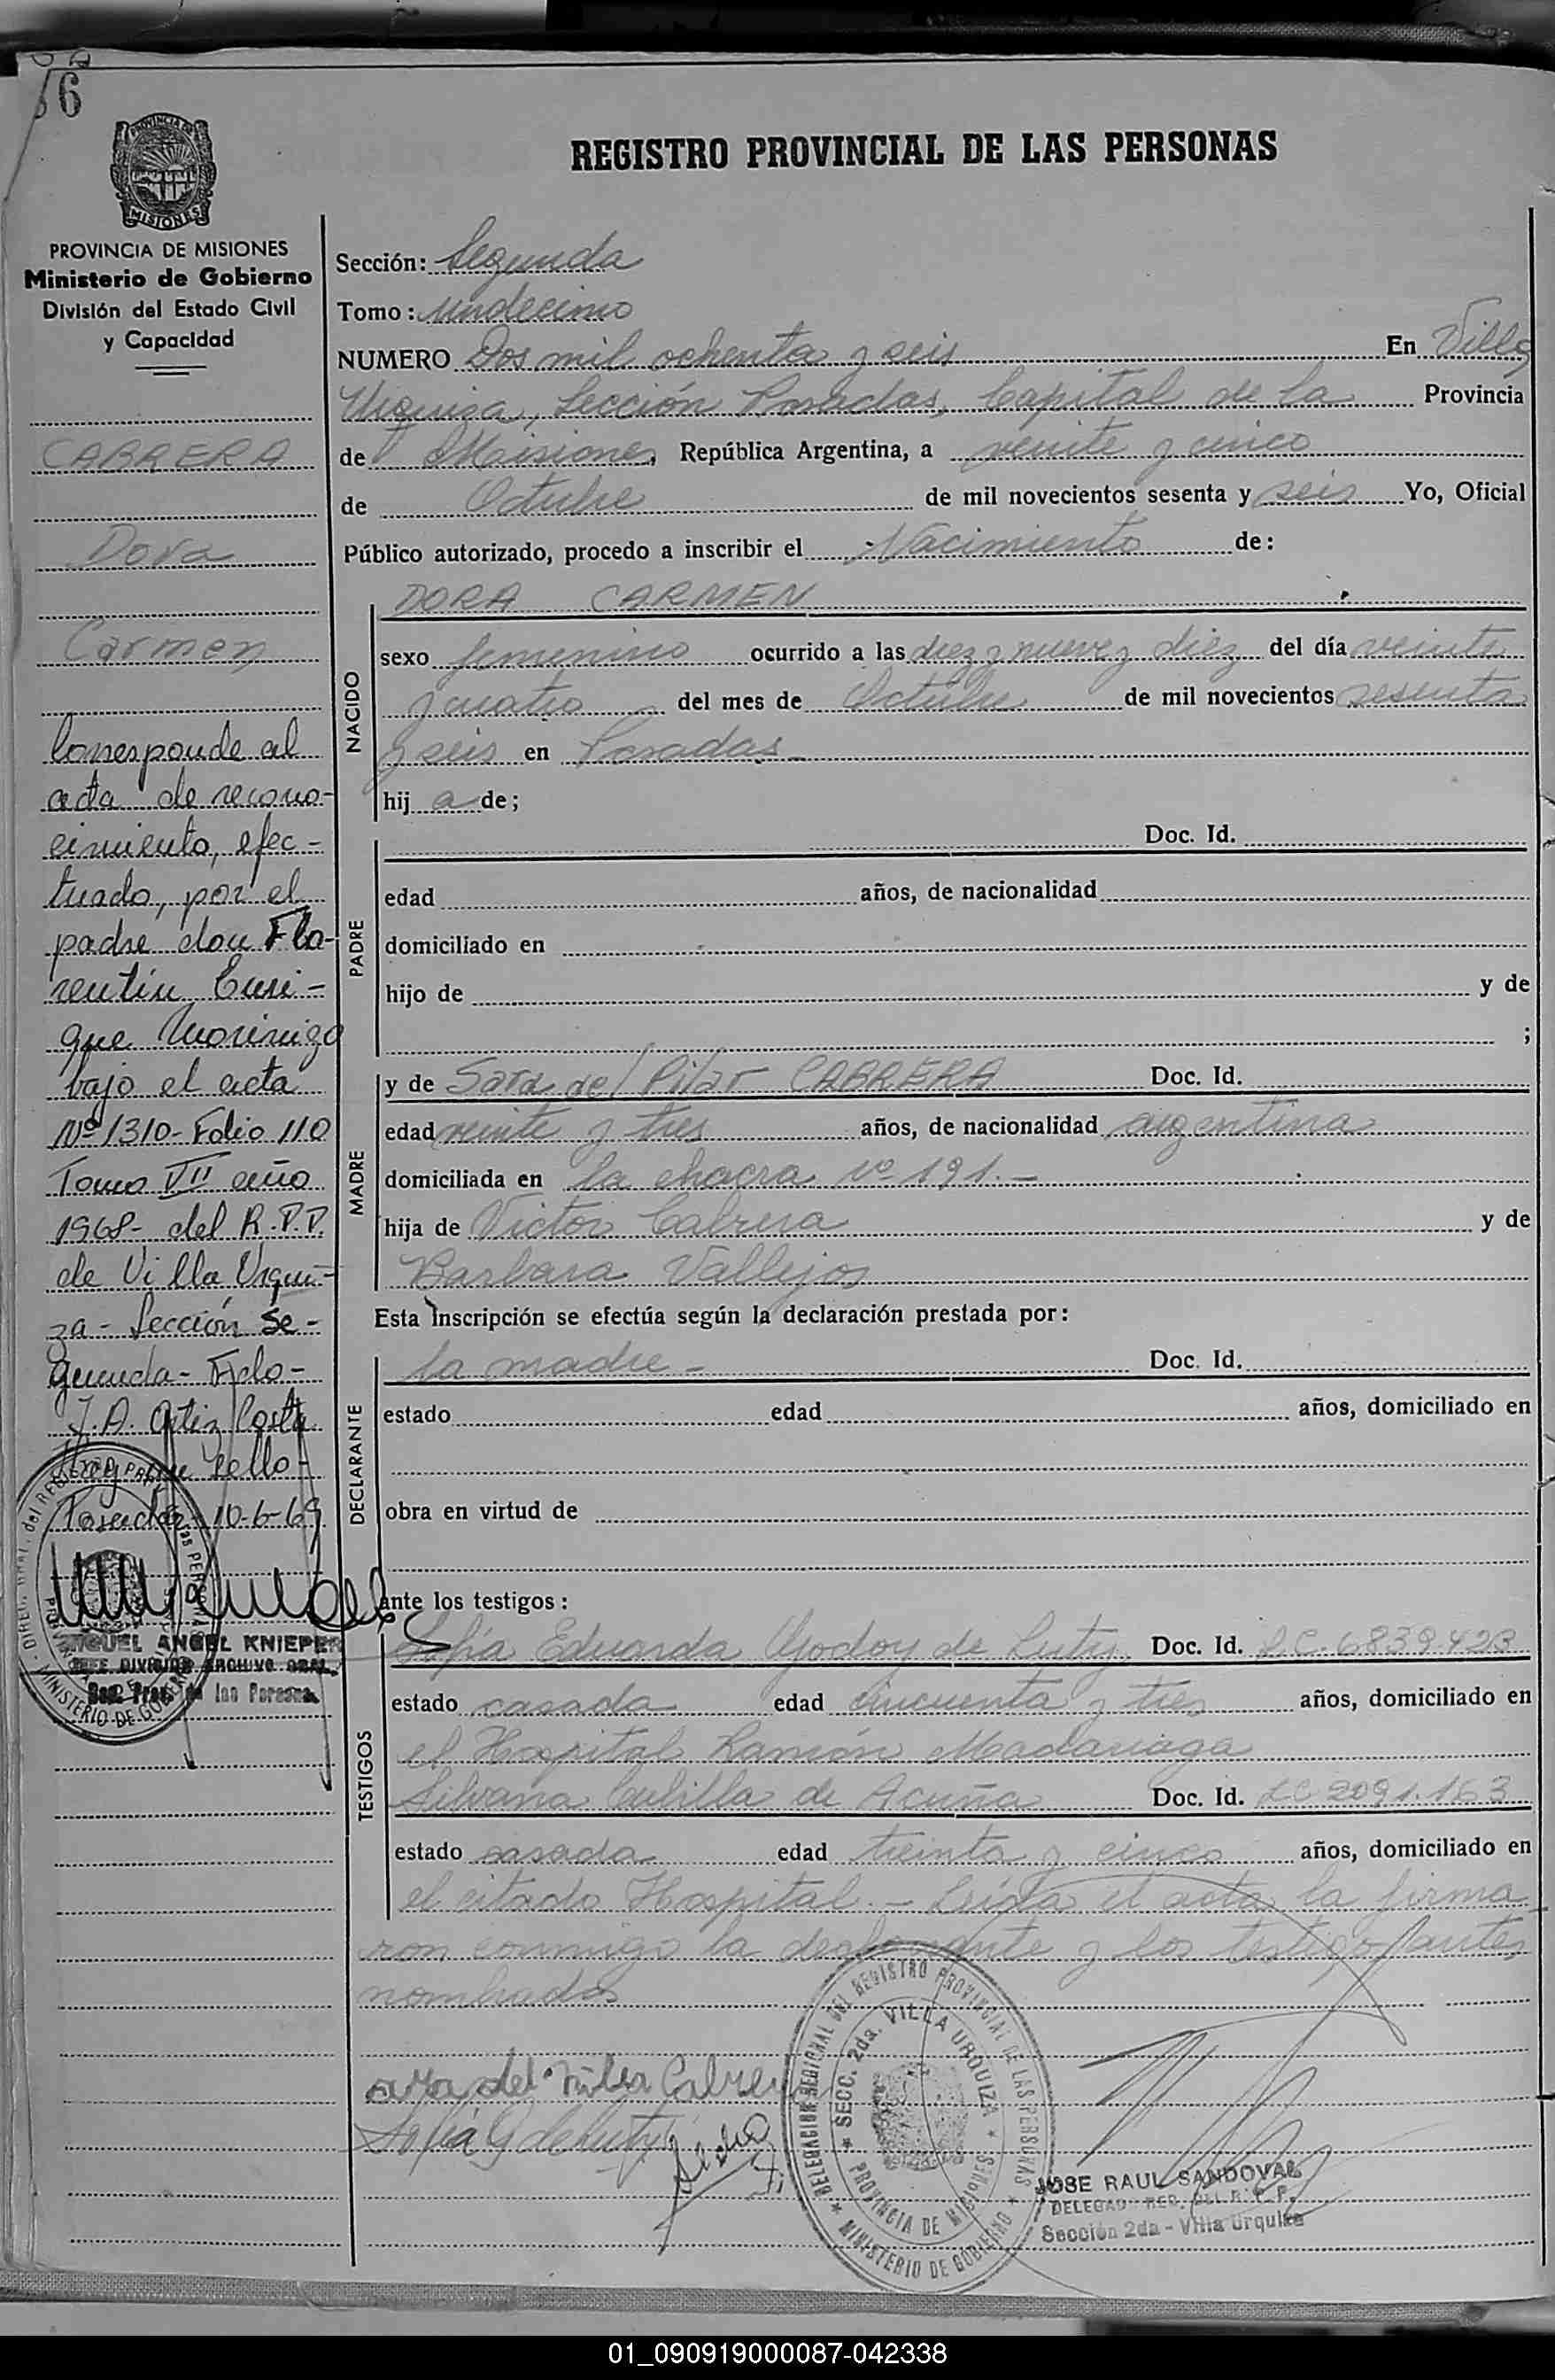 86
REGISTRO PROVINCIAL DE LAS PERSONAS
PROVINCIA DE MISIONES
MISIONES
PROVINCIA DE MISIONES
Ministerio de Gobierno
División del Estado Civil
y Capacidad
CABRERA
Dora
Carmen
Corresponde al
acta de recono-
cimiento, efec-
tuado, por el
padre don Flo-
rentin Enri-
que Morinigo
bajo el acta
Nº 1310- Folio 110
Tomo VII año
1968- del R.P.P.
de Villa Urqui-
za- Sección Se-
gunda- Fdo-
J.A. Ortiz Costa
Hay un sello-
Posadas 10-6-69
MIGUEL ANGEL KNIEPER
JEFE DIVISION ARCHIVO GRAL.
Reg. Prov. de las Personas
Sección: Segunda
Tomo: undecimo
NUMERO Dos mil ochenta y seis En Villa
Urquiza, Sección Posadas, Capital de la Provincia
de Misiones, República Argentina, a veinte y cinco
de Octubre de mil novecientos sesenta y seis Yo, Oficial
Público autorizado, procedo a inscribir el Nacimiento de:
NACIDO
DORA CARMEN
sexo femenino ocurrido a las diez y nueve y diez del día veinte
y cuatro del mes de Octubre de mil novecientos sesenta
y seis en Posadas-
hij a de;
PADRE
Doc. Id.
edad años, de nacionalidad
domiciliado en
hijo de y de
;
MADRE
y de Sara del Pilar CABRERA Doc. Id.
edad veinte y tres años, de nacionalidad argentina
domiciliada en la chacra nº 191.-
hija de Victor Cabrera y de
Barbara Vallejos
Esta Inscripción se efectúa según la declaración prestada por:
DECLARANTE
la madre- Doc. Id.
estado edad años, domiciliado en
obra en virtud de
ante los testigos:
TESTIGOS
Sofía Eduarda Godoy de Luty Doc. Id. L.C. 6839423
estado casada edad cincuenta y tres años, domiciliado en
el Hospital Ramón Madariaga
Silvana Cubilla de Acuña Doc. Id. LC 2091.163
estado casada edad treinta y cinco años, domiciliado en
el citado Hospital.- Leída el acta la firma
ron conmigo la declarante y los testigos antes
nombrados
Sara del Pilar Cabrera
Sofia G de Luty
DELEGACION REGIONAL DEL REGISTRO PROVINCIAL DE LAS PERSONAS
SECC. 2da. VILLA URQUIZA
PROVINCIA DE MISIONES
MINISTERIO DE GOBIERNO
JOSE RAUL SANDOVAL
DELEGADO REG. DEL R. P. P.
Sección 2da - Villa Urquiza
01_090919000087-042338